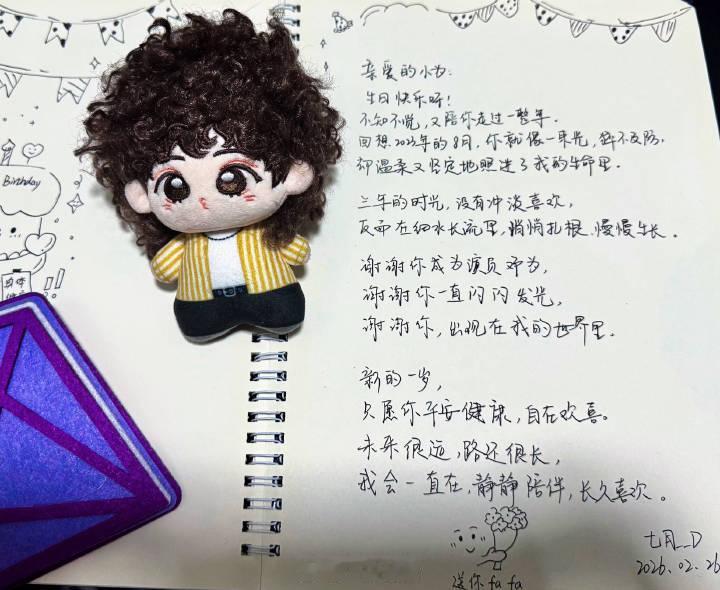 Birthday
亲爱的小为:
生日快乐呀!
不知不觉,又陪你走过一整年.
回想2023年的8月,你就像一束光,猝不及防,
却温柔又坚定地照进了我的生命里.
三年的时光,没有冲淡喜欢,
反而在细水长流里,悄悄扎根、慢慢生长。
谢谢你成为演员邓为,
谢谢你一直闪闪发光,
谢谢你,出现在我的世界里.
新的一岁,
只愿你平安健康,自在欢喜。
未来很远,路还很长,
我会一直在,静静陪伴,长久喜欢。
送你fa fa
七月_D
2026.02.26